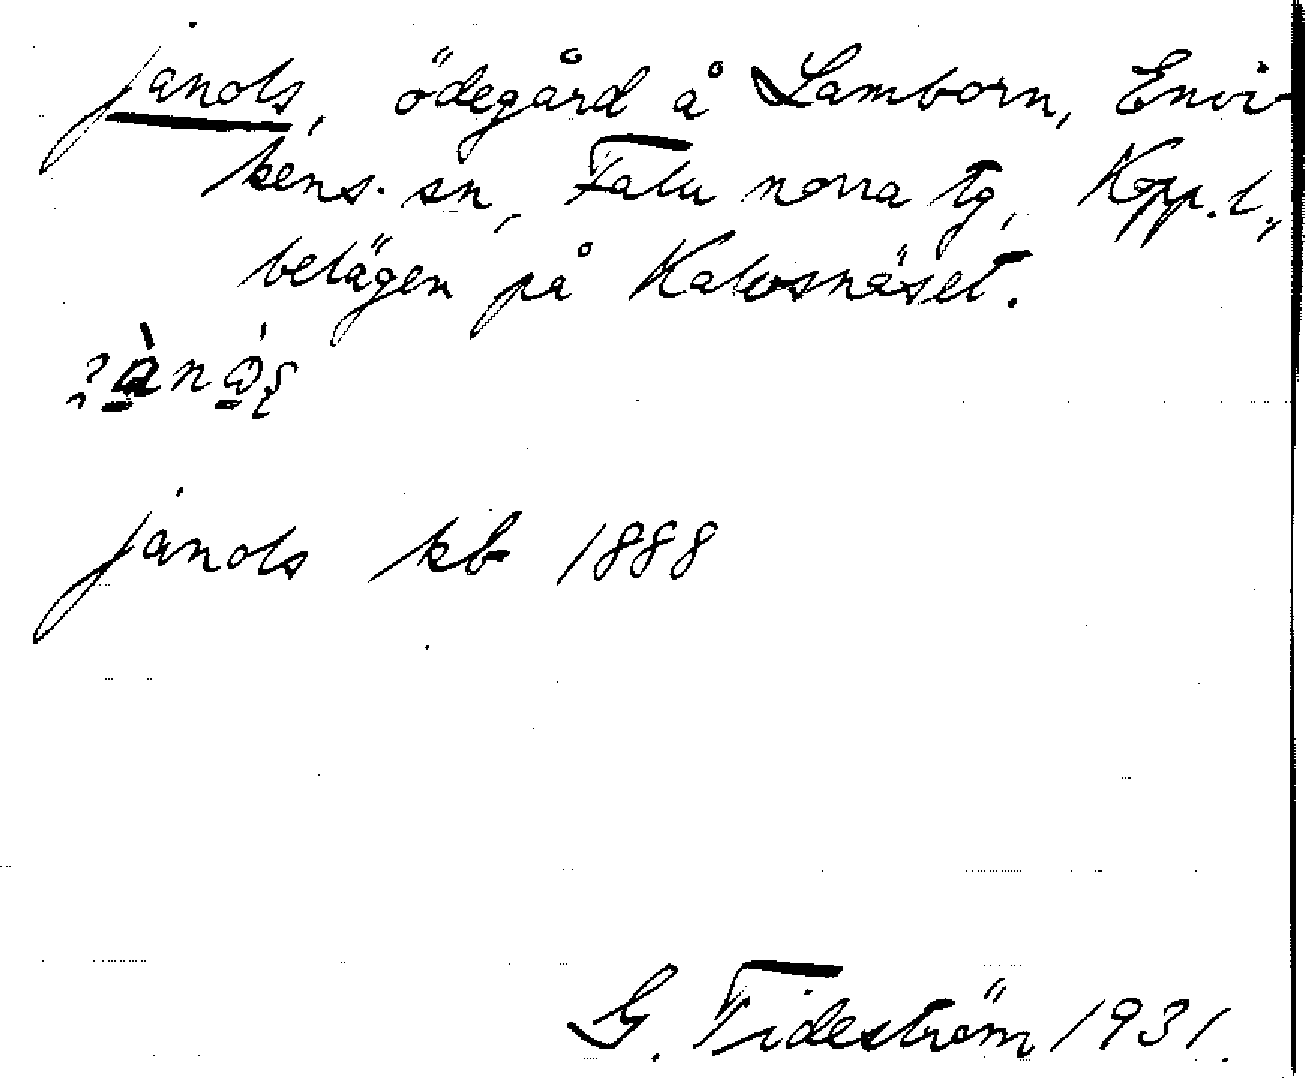 janols, ödegård å Lamborn, Envi-
kens. sn, Falu norra tg, Kopp. l.,
belägen på Kalvsnäset.
janols kb 1888
G. Tideström 1931.